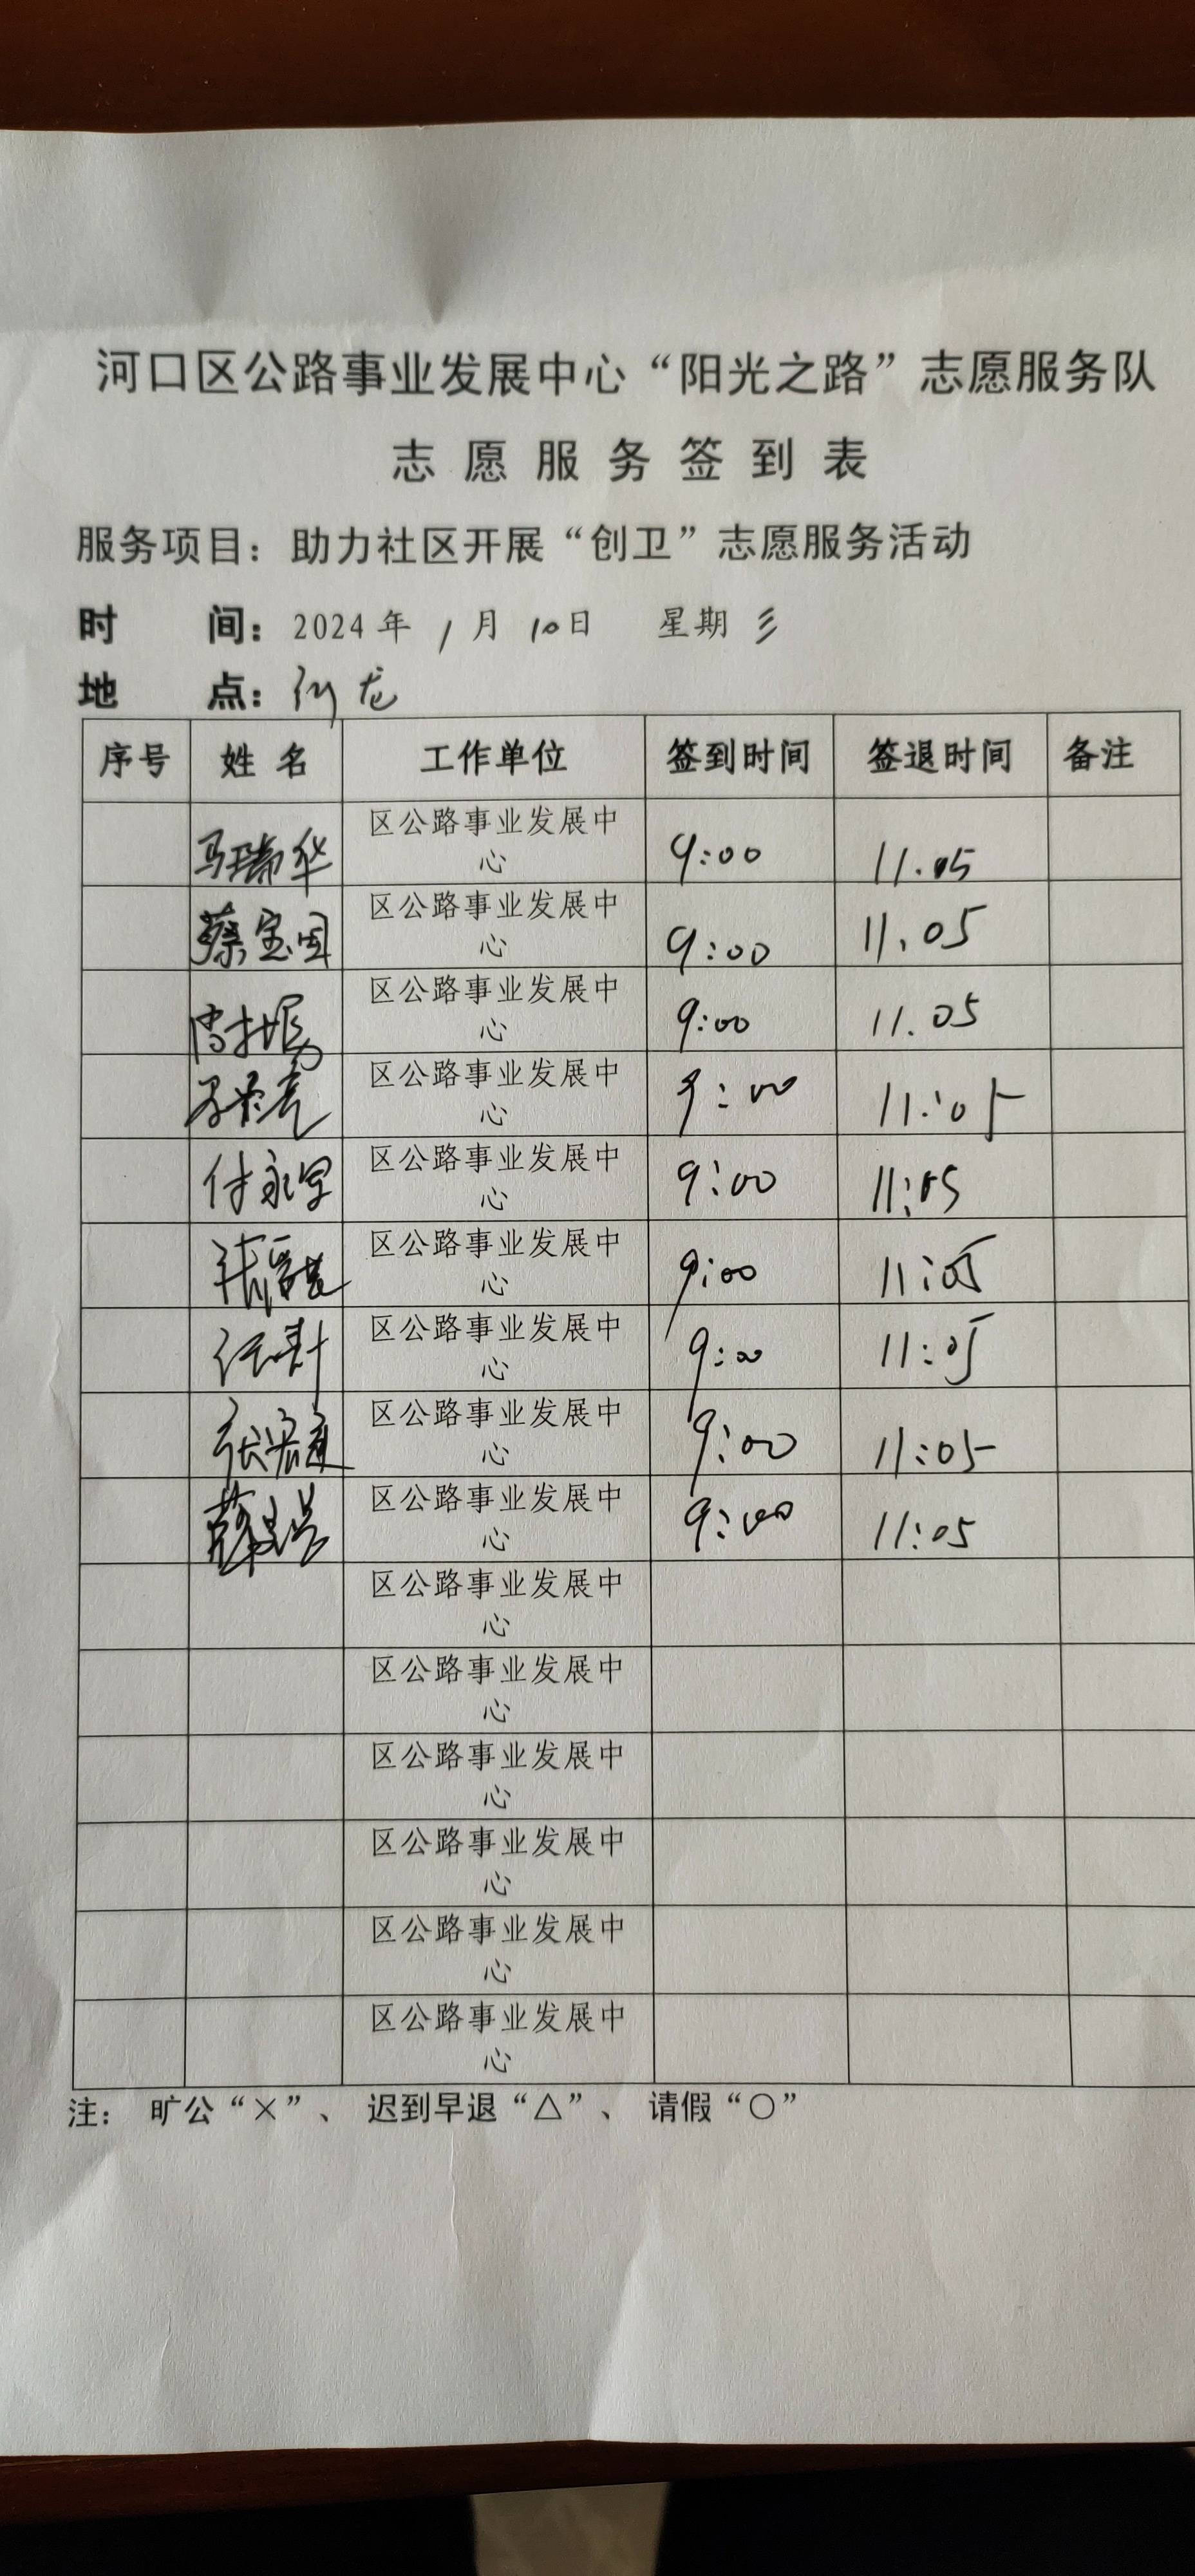 河口区公路事业发展中心“阳光之路”志愿服务队
志愿服务签到表
服务项目：助力社区开展“创卫”志愿服务活动
时 间：2024年 1月 10日 星期 三
地 点：河龙
序号 姓名 工作单位 签到时间 签退时间 备注
马瑞华 区公路事业发展中 9:00 11.05
心
蔡宝国 区公路事业发展中 9:00 11.05
心
区公路事业发展中 9:00 11.05
心
区公路事业发展中 9:00 11:05
心
付永军 区公路事业发展中 9:00 11:05
心
区公路事业发展中 9:00 11:05
心
区公路事业发展中 9:00 11:05
心
区公路事业发展中 9:00 11:05
心
区公路事业发展中 9:00 11:05
心
区公路事业发展中
心
区公路事业发展中
心
区公路事业发展中
心
区公路事业发展中
心
区公路事业发展中
心
区公路事业发展中
心
注： 旷公“×”、 迟到早退“△”、 请假“○”